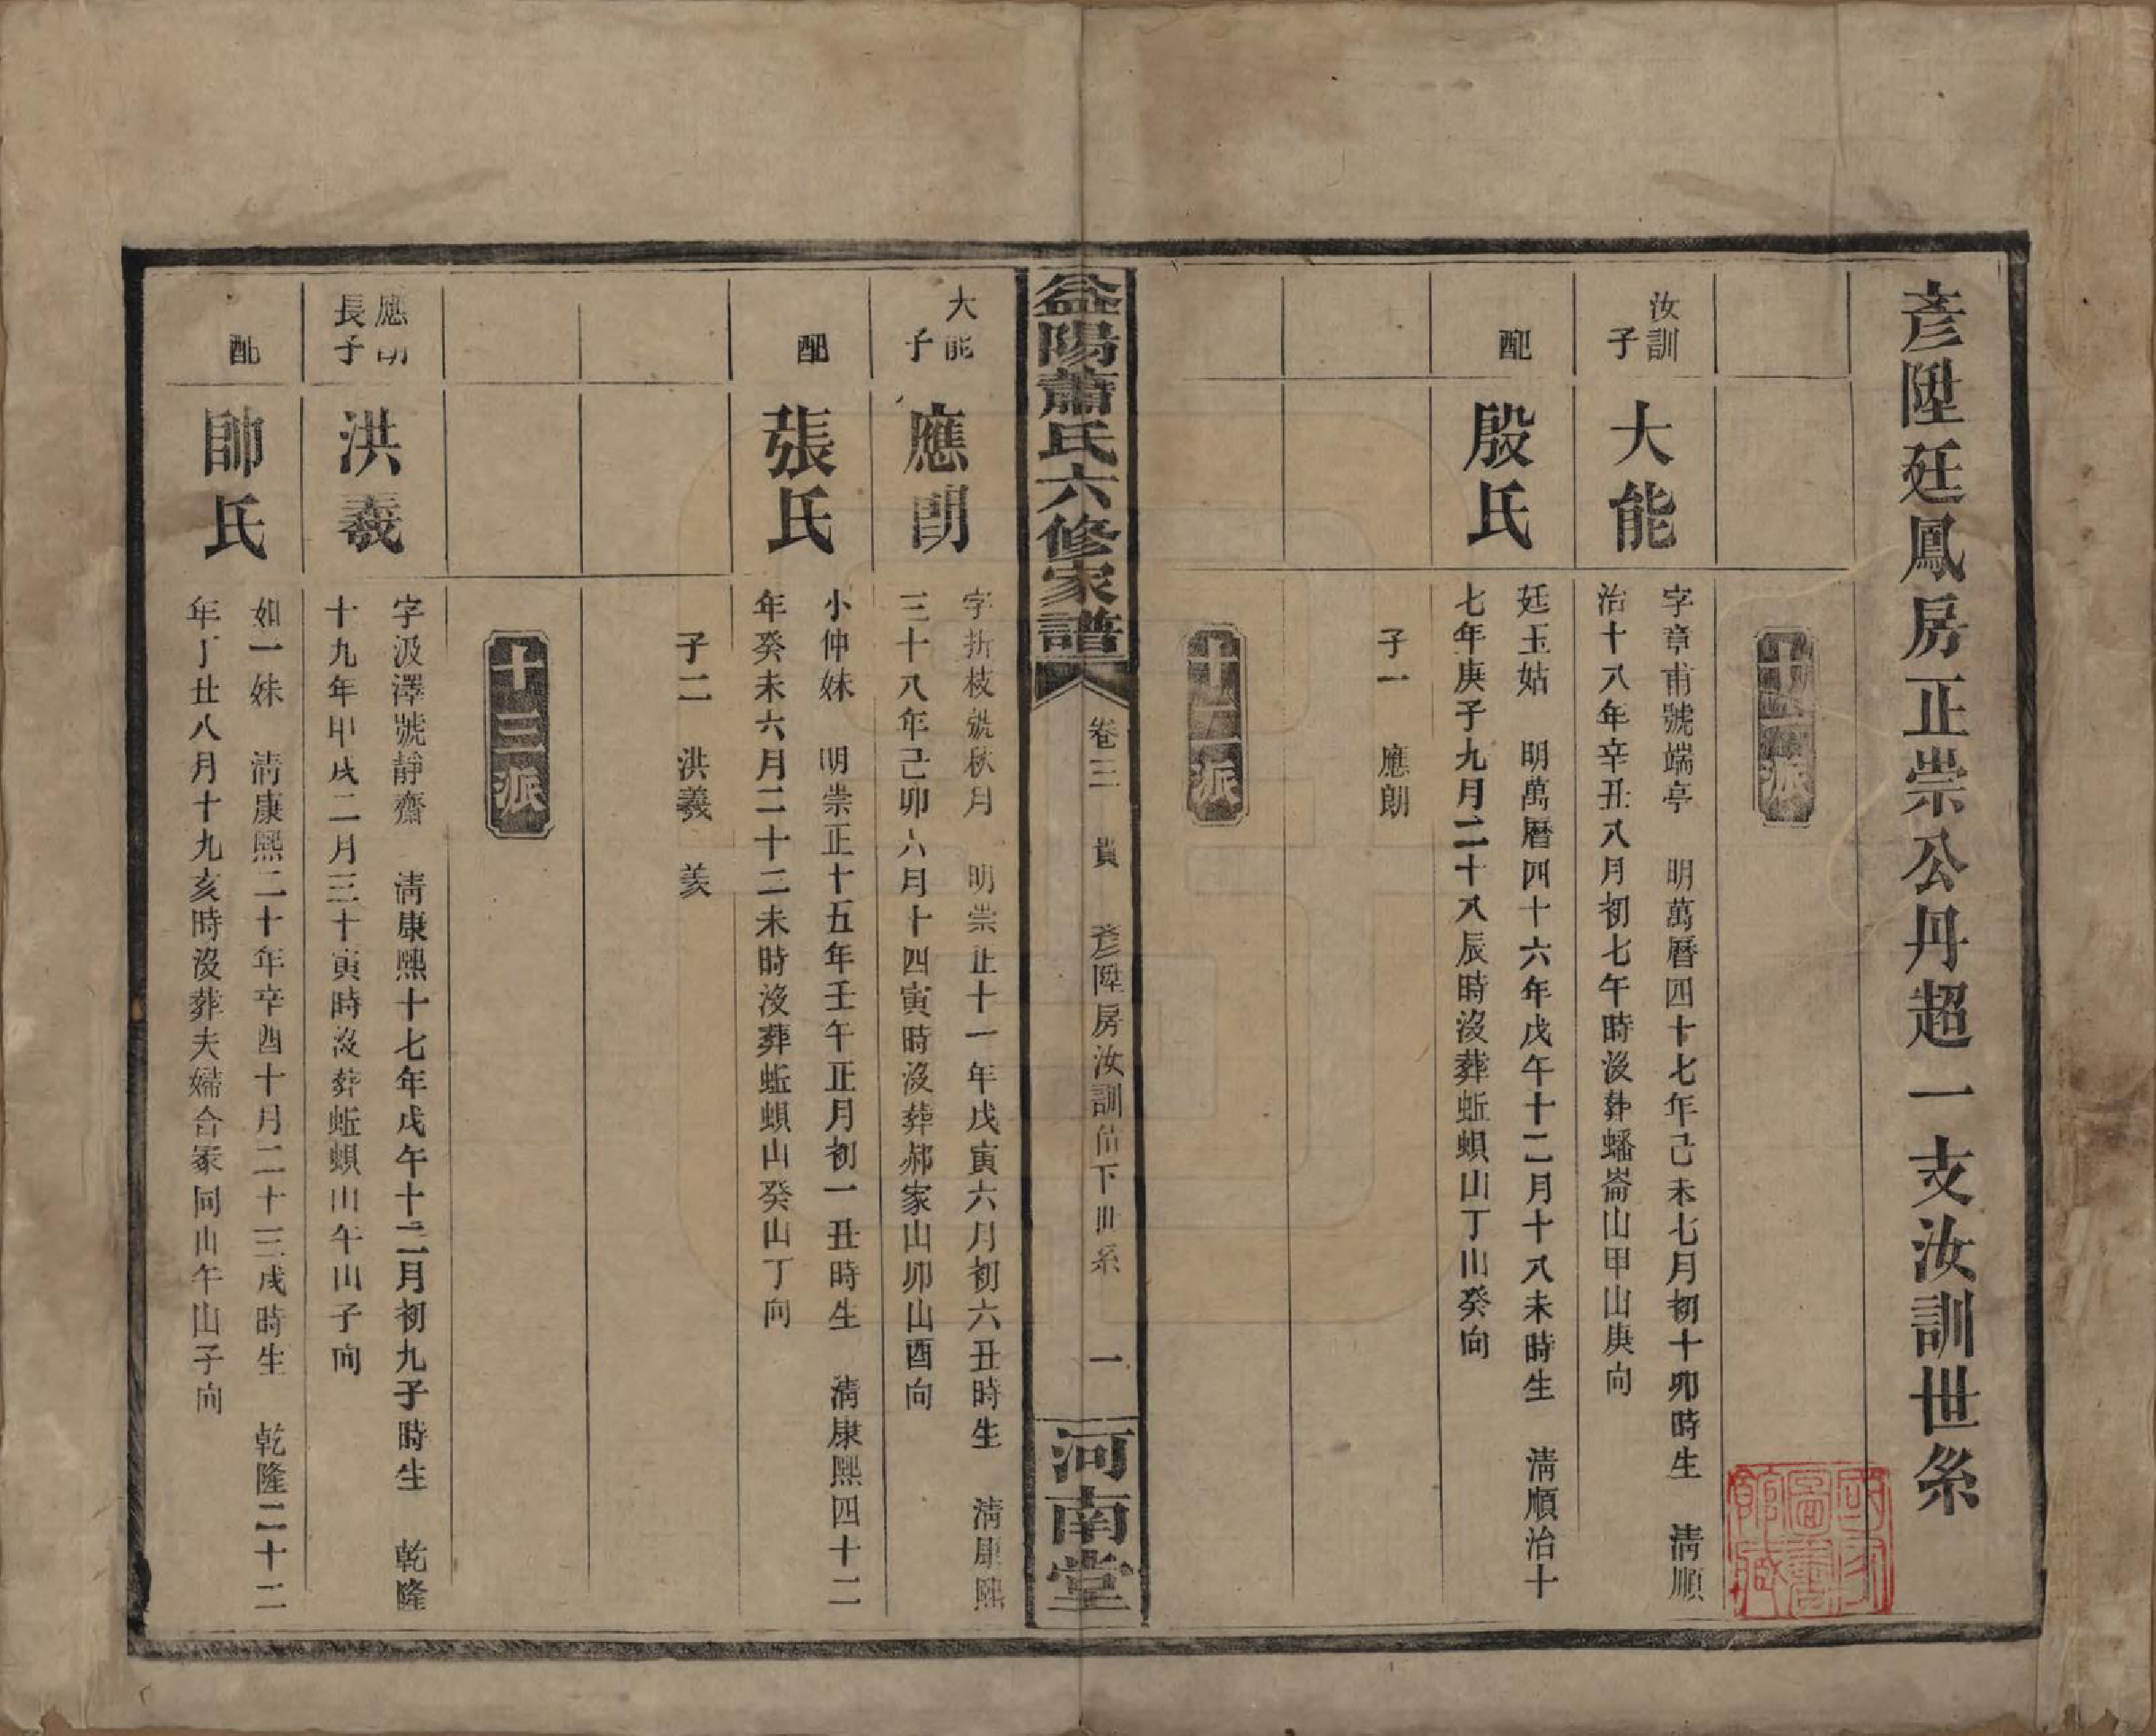 彥陞廷鳳房正崇公丹超一支汝訓世系
十一派
汝訓子
大能
字章甫號端亭 明萬曆四十七年己未七月初十卯時生 清順
治十八年辛丑八月初七午時沒葬蟠崙山甲山庚向
配
殷氏
廷玉姑 明萬曆四十六年戊午十二月十八未時生 清順治十
七年庚子九月二十八辰時沒葬蚯蟥山丁山癸向
子一 應朗
十二派
益陽蕭氏六修家譜
卷三 貴 彥陞房汝訓 下世系 一
河南堂
大能子
應朗
字折枝號秋月 明崇正十一年戊寅六月初六丑時生 清康熙
三十八年己卯六月十四寅時沒葬郝家山卯山酉向
配
張氏
小仲妹 明崇正十五年壬午正月初一丑時生 清康熙四十二
年癸未六月二十二未時沒葬蚯蟥山癸山丁向
子二 洪羲 羙
十三派
應朗長子
洪羲
字汲澤號靜齋 清康熙十七年戊午十二月初九子時生 乾隆
十九年甲戌二月三十寅時沒葬蚯蟥山午山子向
配
帥氏
如一妹 清康熙二十年辛酉十月二十三戌時生 乾隆二十二
年丁丑八月十九亥時沒葬夫婦合冢同山午山子向
國家圖書館藏